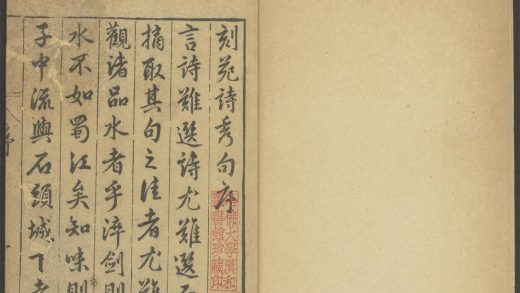 刻苑詩秀句序
言詩難選詩尤難選而
摘取其句之佳者尤難
觀諸品水者乎淬劍則
水不如蜀江矣知味則
子中流與石頭城下者
序
哈佛大學漢和
圖書館珍藏印